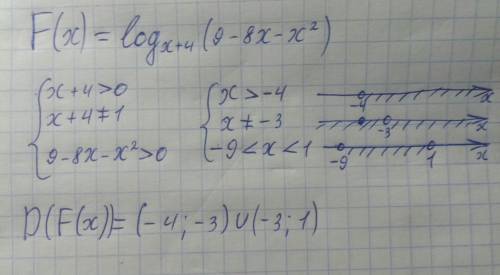 F(x) = log_{x+4} (9-8x-x²)
{ x+4>0
x+4≠1
9-8x-x²>0
{ x>-4
x≠-3
-9<x<1
-4 x
-3 x
-9 1 x
D(F(x))=(-4;-3)∪(-3;1)